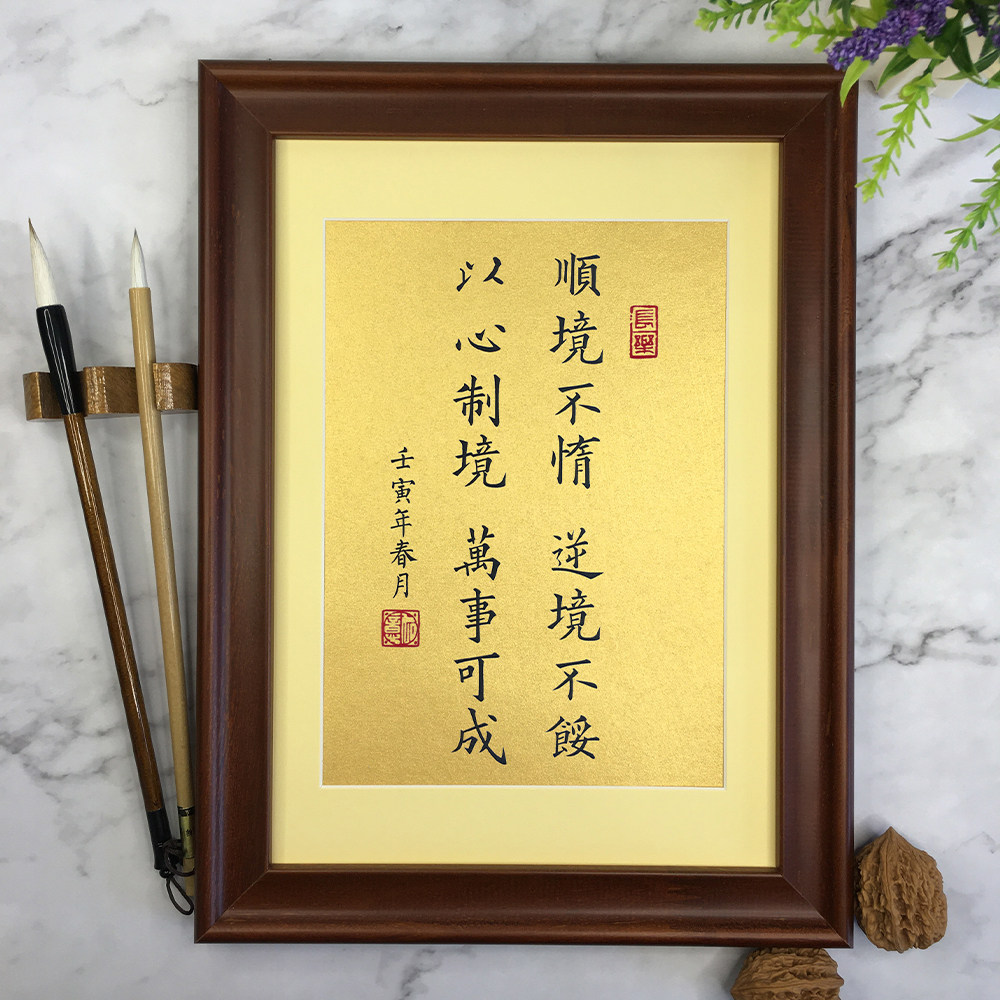 長樂
順境不惰 逆境不餒
以心制境 萬事可成
壬寅年春月